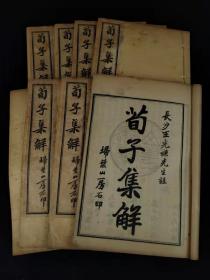 長沙王先謙先生註
荀子集解
埽葉山房石印
荀子集解
埽葉山房石印
荀子集解
埽葉山房石印
荀子集解
荀子集解
荀子集解
荀子集解